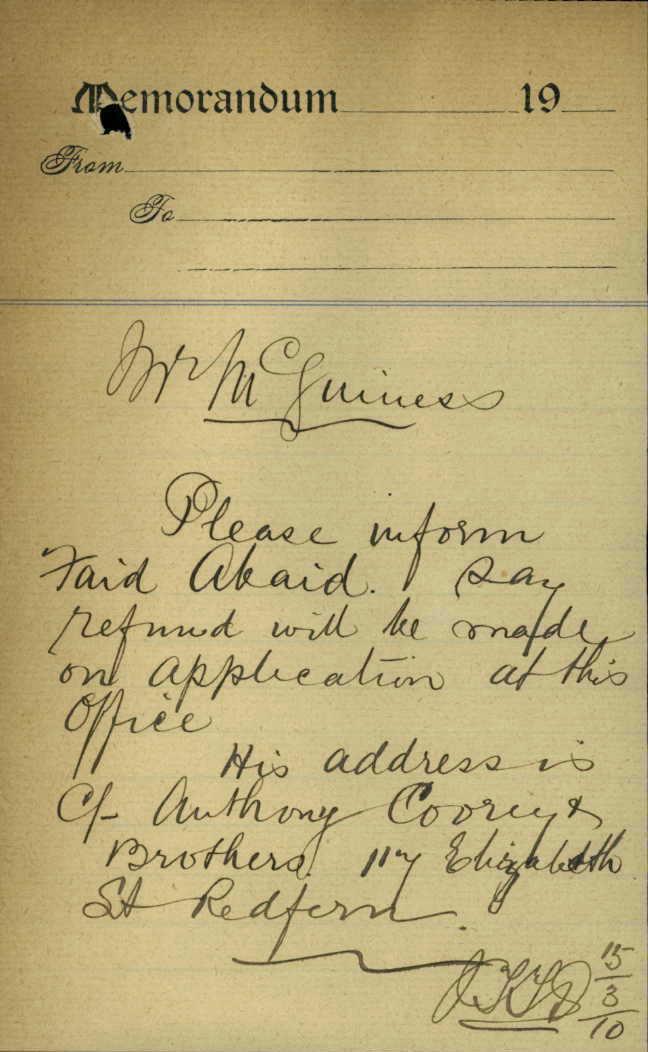 Memorandum 19
From
To
Mr McGuiness
Please inform
Faid Akaid. Say
refund will be made
on application at this
Office
His address is
C/- Anthony Coorey &
Brothers. Elizabeth
St Redfern.
15
3
10